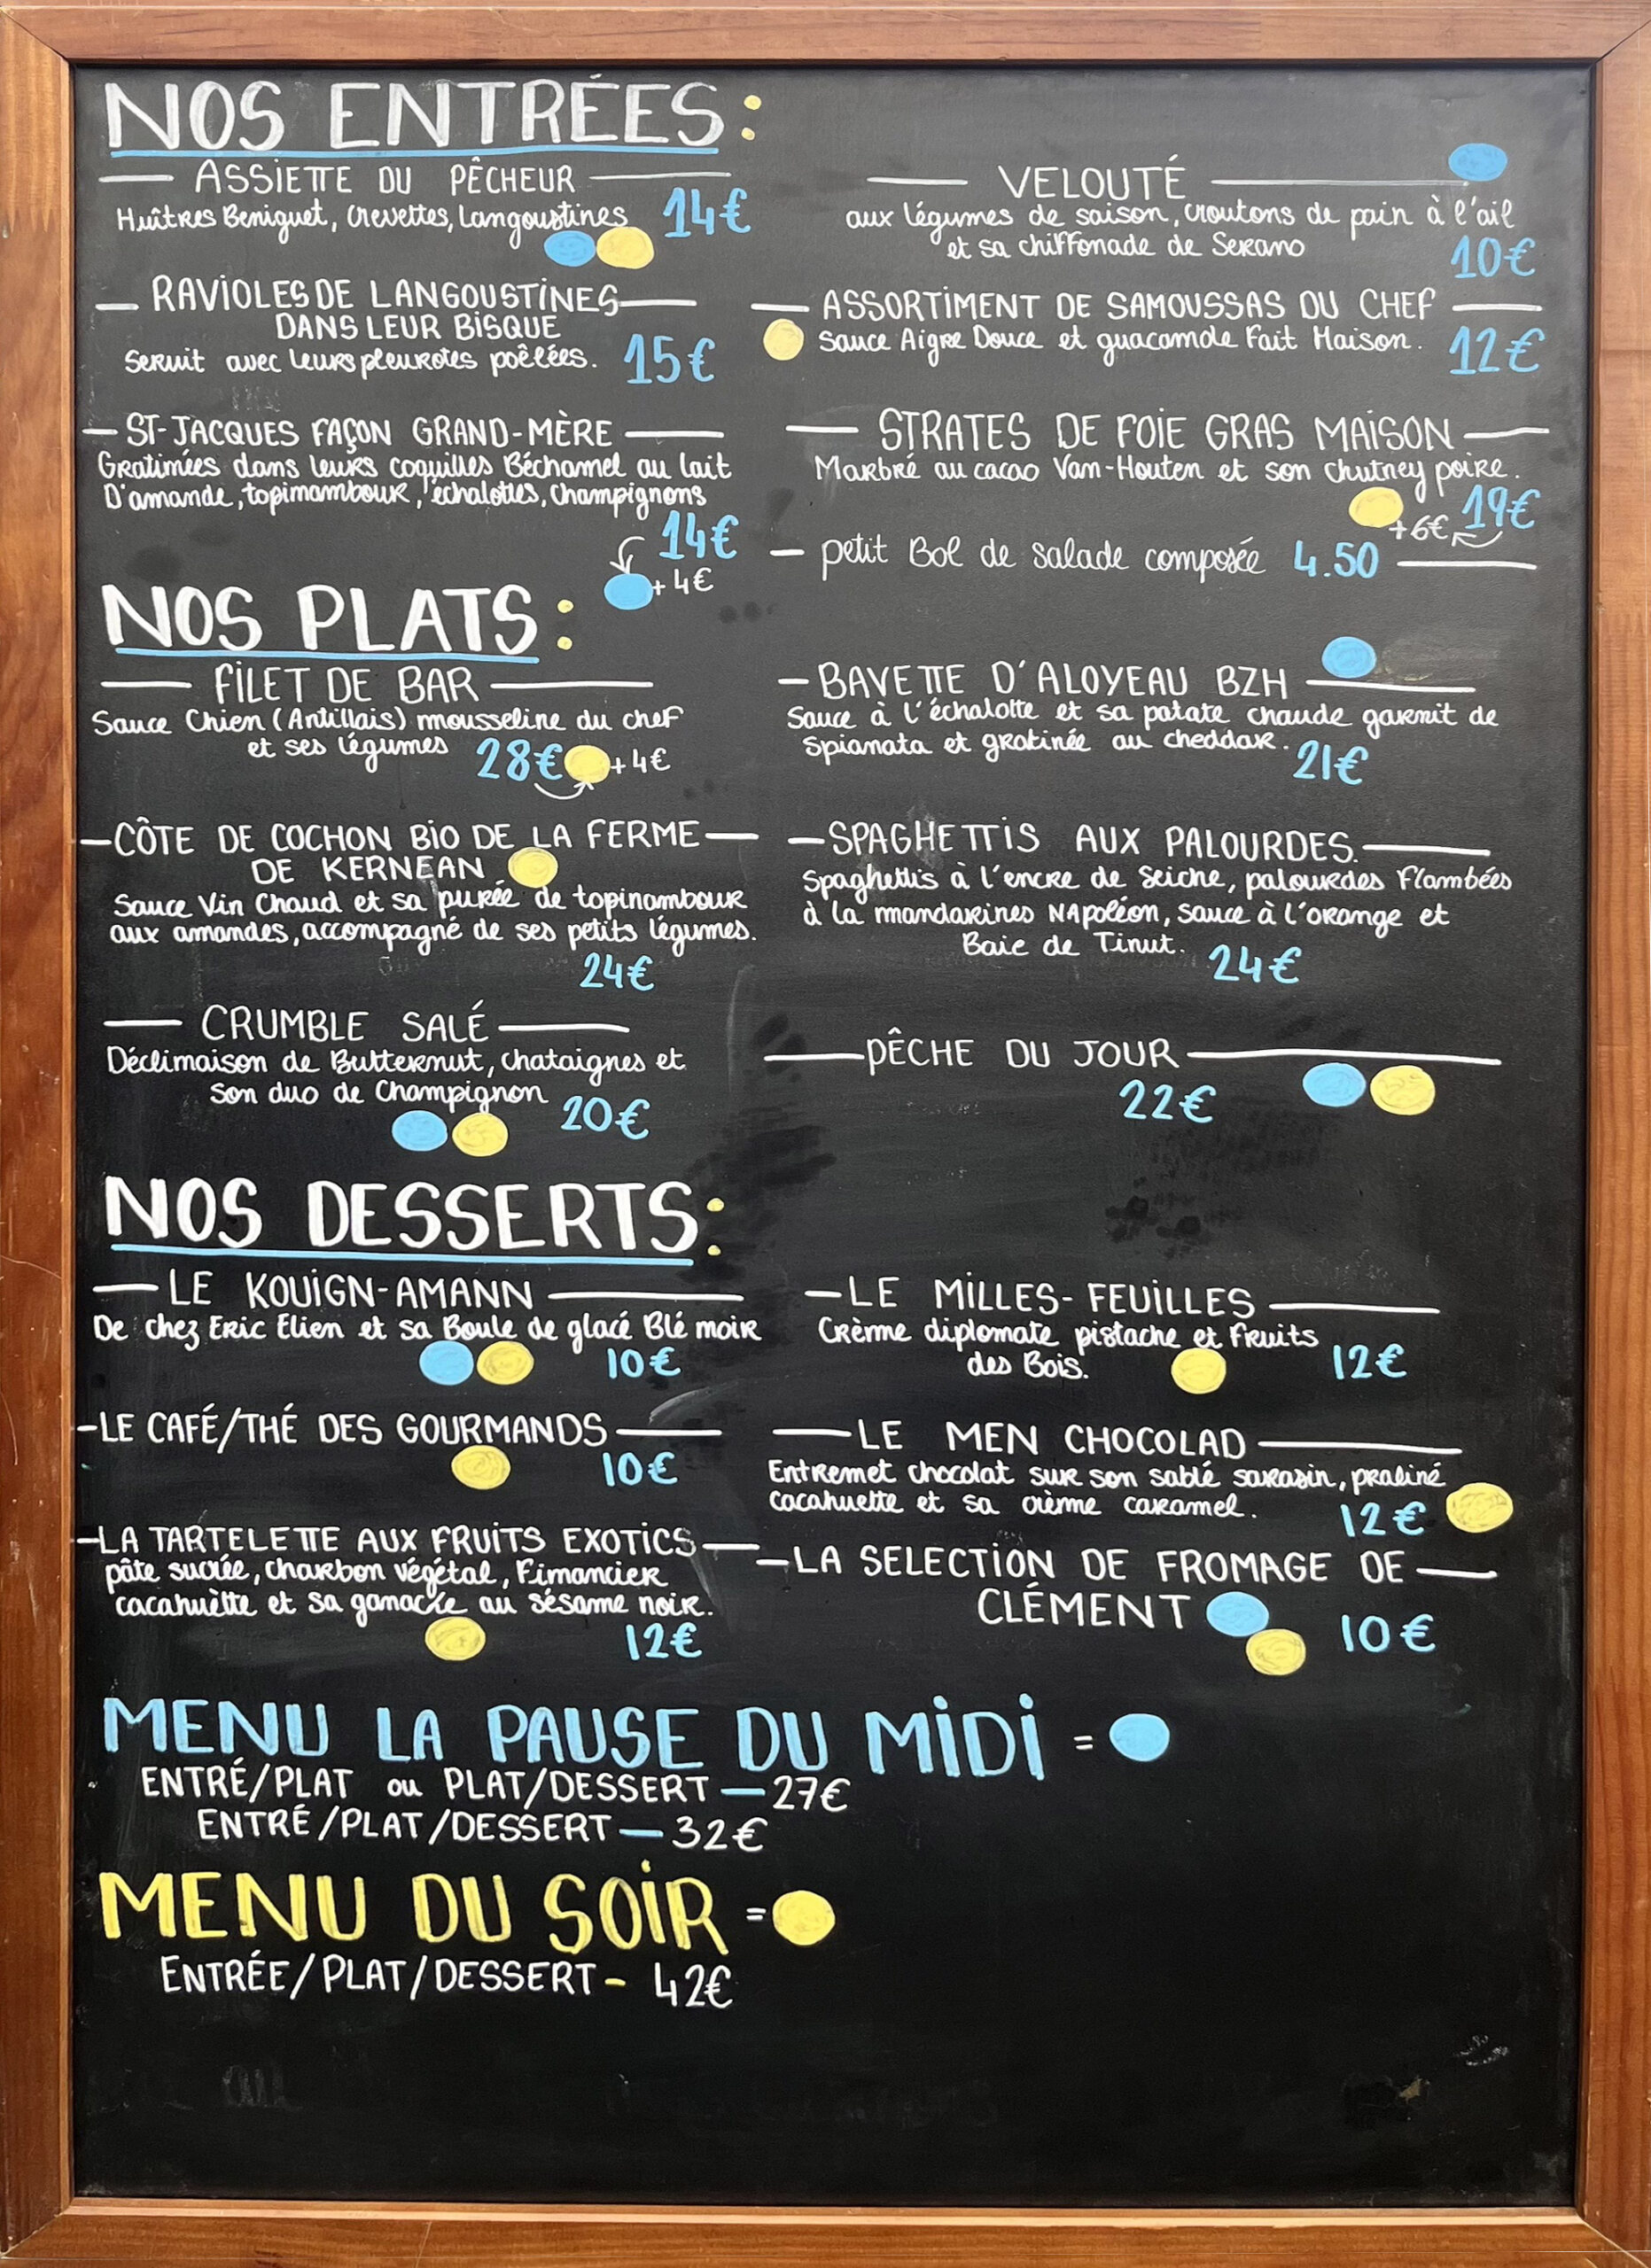 NOS ENTRÉES:
ASSIETTE DU PÊCHEUR
Huîtres Beniguet, Crevettes, Langoustines 14€
RAVIOLES DE LANGOUSTINES
DANS LEUR BISQUE
Servit avec leurs pleurotes poêlées. 15€
ST-JACQUES FAÇON GRAND-MÈRE
Gratinées dans leurs coquilles Béchamel au lait
D'amande, topinambour, échalottes, Champignons
14€
+4€
VELOUTÉ
aux légumes de saison, croutons de pain à l'ail
et sa chiffonade de Serano
10€
ASSORTIMENT DE SAMOUSSAS DU CHEF
Sauce Aigre Douce et guacamole Fait Maison. 12€
STRATES DE FOIE GRAS MAISON
Marbré au cacao Van-Houten et son chutney poire.
+6€ 19€
petit Bol de salade composée 4.50
NOS PLATS:
FILET DE BAR
Sauce Chien (Antillais) mousseline du chef
et ses légumes 28€ +4€
CÔTE DE COCHON BIO DE LA FERME
DE KERNEAN
Sauce Vin Chaud et sa purée de topinambour
aux amandes, accompagné de ses petits légumes.
24€
CRUMBLE SALÉ
Déclinaison de Butternut, chataignes et
Son duo de Champignon 20€
BAVETTE D'ALOYEAU BZH
Sauce à l'échalotte et sa patate chaude garnit de
Spianata et gratinée au cheddar. 21€
SPAGHETTIS AUX PALOURDES.
Spaghettis à l'encre de Seiche, palourdes Flambées
à la mandarines NApoléon, Sauce à l'orange et
Baie de Tinut. 24€
PÊCHE DU JOUR
22€
NOS DESSERTS:
LE KOUIGN-AMANN
De chez Eric Elien et sa Boule de glacé Blé noir
10€
LE CAFÉ/THÉ DES GOURMANDS
10€
LA TARTELETTE AUX FRUITS EXOTICS
pâte sucrée, charbon végétal, Financier
cacahuètte et sa ganache au sésame noir.
12€
LE MILLES-FEUILLES
Crème diplomate pistache et Fruits
des Bois. 12€
LE MEN CHOCOLAD
Entremet chocolat sur son sablé sarasin, praliné
cacahuette et sa crème caramel. 12€
LA SELECTION DE FROMAGE DE
CLÉMENT 10€
MENU LA PAUSE DU MIDI =
ENTRÉ/PLAT ou PLAT/DESSERT — 27€
ENTRÉ/PLAT/DESSERT — 32€
MENU DU SOIR =
ENTRÉE/PLAT/DESSERT - 42€